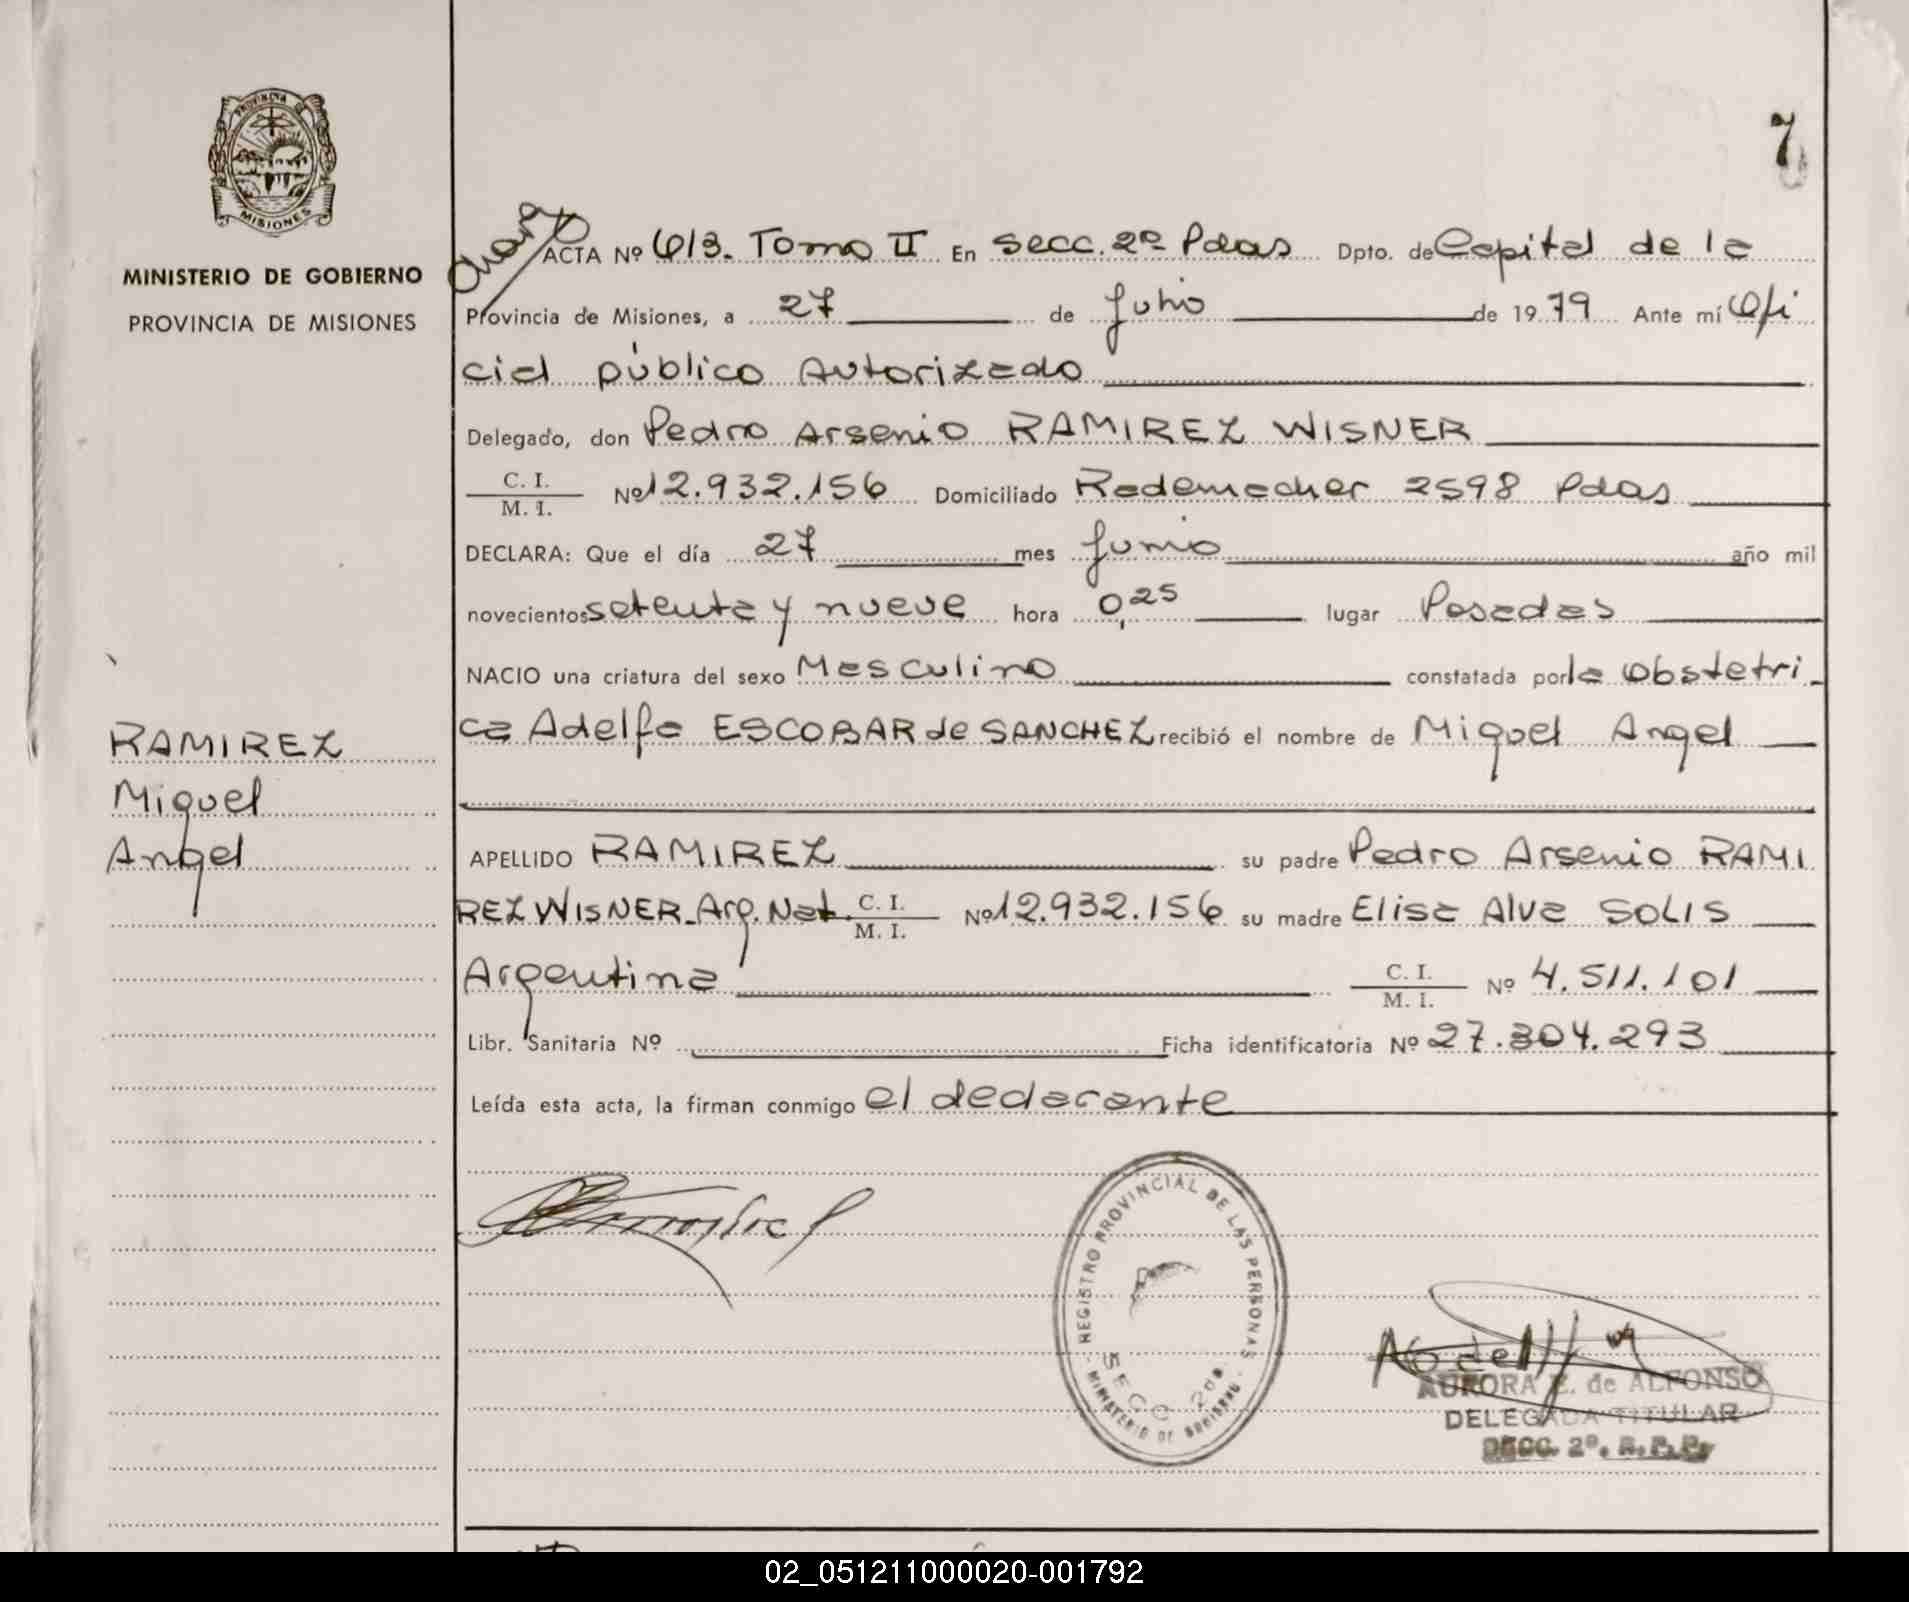 7
PROVINCIA DE
MISIONES
MINISTERIO DE GOBIERNO
PROVINCIA DE MISIONES
RAMIREZ
Miguel
Angel
ACTA Nº 613. Tomo II En Secc. 2º Pdas Dpto. de Capital de la
Provincia de Misiones, a 27 de Julio de 1979 Ante mí Ofi
cial público Autorizado
Delegado, don Pedro Arsenio RAMIREZ WISNER
C. I.
M. I. Nº 12.932.156 Domiciliado Rademacher 2598 Pdas
DECLARA: Que el día 27 mes Junio año mil
novecientos setenta y nueve hora 0,25 lugar Posadas
NACIO una criatura del sexo Masculino constatada por la Obstetri
ca Adelfa ESCOBAR de SANCHEZ recibió el nombre de Miguel Angel
APELLIDO RAMIREZ su padre Pedro Arsenio RAMI
REZ WISNER Arg. Nat. C. I. M. I. Nº 12.932.156 su madre Elisa Alva SOLIS
Argentina C. I. M. I. Nº 4.511.101
Libr. Sanitaria Nº Ficha identificatoria Nº 27.304.293
Leída esta acta, la firman conmigo el declarante
REGISTRO PROVINCIAL DE LAS PERSONAS
SECC 2da.
MINISTERIO DE GOBIERNO
AURORA E. de ALFONSO
DELEGADA TITULAR
SECC. 2º. R.P.P.
02_051211000020-001792